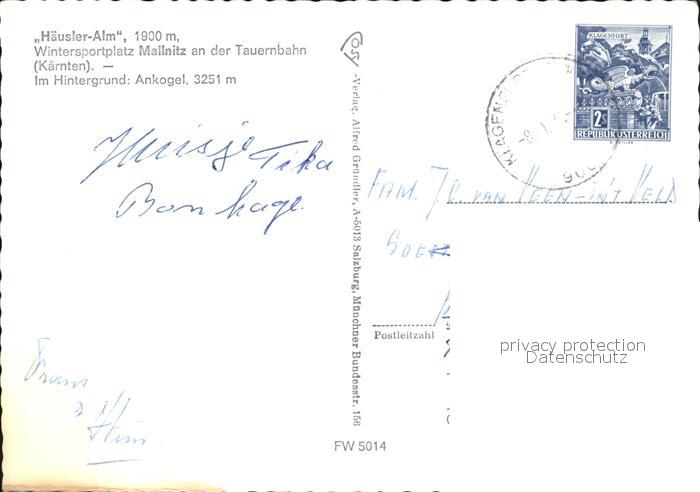 „Häusler-Alm", 1900 m,
Wintersportplatz Mallnitz an der Tauernbahn
(Kärnten). —
Im Hintergrund: Ankogel, 3251 m
Tika
Frans
Wim
ÖS
-Verlag, Alfred Gründler, A-5013 Salzburg, Münchner Bundesstr. 156
FW 5014
KLAGENFURT
2S
REPUBLIK ÖSTERREICH
KLAGENF
900
FAM. J.C. VAN VEEN-IN'T VELD
Postleitzahl
privacy protection
Datenschutz